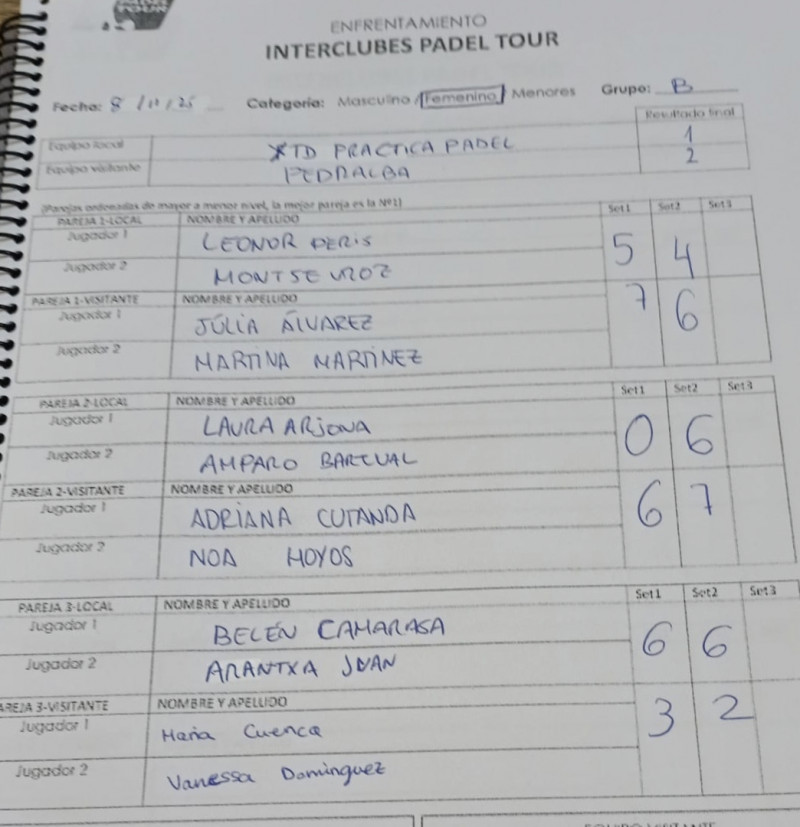 TOUR
ENFRENTAMIENTO
INTERCLUBES PADEL TOUR
Fecha: 8 /11/25 Categoría: Masculino / Femenino / Menores Grupo: B
Resultado final
Equipo local XTD PRACTICA PADEL 1
Equipo visitante PEDRALBA 2
(Parejas ordenadas de mayor a menor nivel, la mejor pareja es la Nº1)
PAREJA 1-LOCAL NOMBRE Y APELLIDO Set1 Set2 Set3
Jugador 1 LEONOR PERIS 5 4
Jugador 2 MONTSE
PAREJA 1-VISITANTE NOMBRE Y APELLIDO 7 6
Jugador 1 JÚLIA ÁLVAREZ
Jugador 2 MARTINA MARTINEZ
PAREJA 2-LOCAL NOMBRE Y APELLIDO Set1 Set2 Set3
Jugador 1 LAURA ARJONA 0 6
Jugador 2 AMPARO
PAREJA 2-VISITANTE NOMBRE Y APELLIDO 6 7
Jugador 1 ADRIANA CUTANDA
Jugador 2 NOA HOYOS
PAREJA 3-LOCAL NOMBRE Y APELLIDO Set1 Set2 Set3
Jugador 1 BELÉN CAMARASA 6 6
Jugador 2 ARANTXA JUAN
AREJA 3-VISITANTE NOMBRE Y APELLIDO 3 2
Jugador 1 María Cuenca
Jugador 2 Vanessa Domínguez